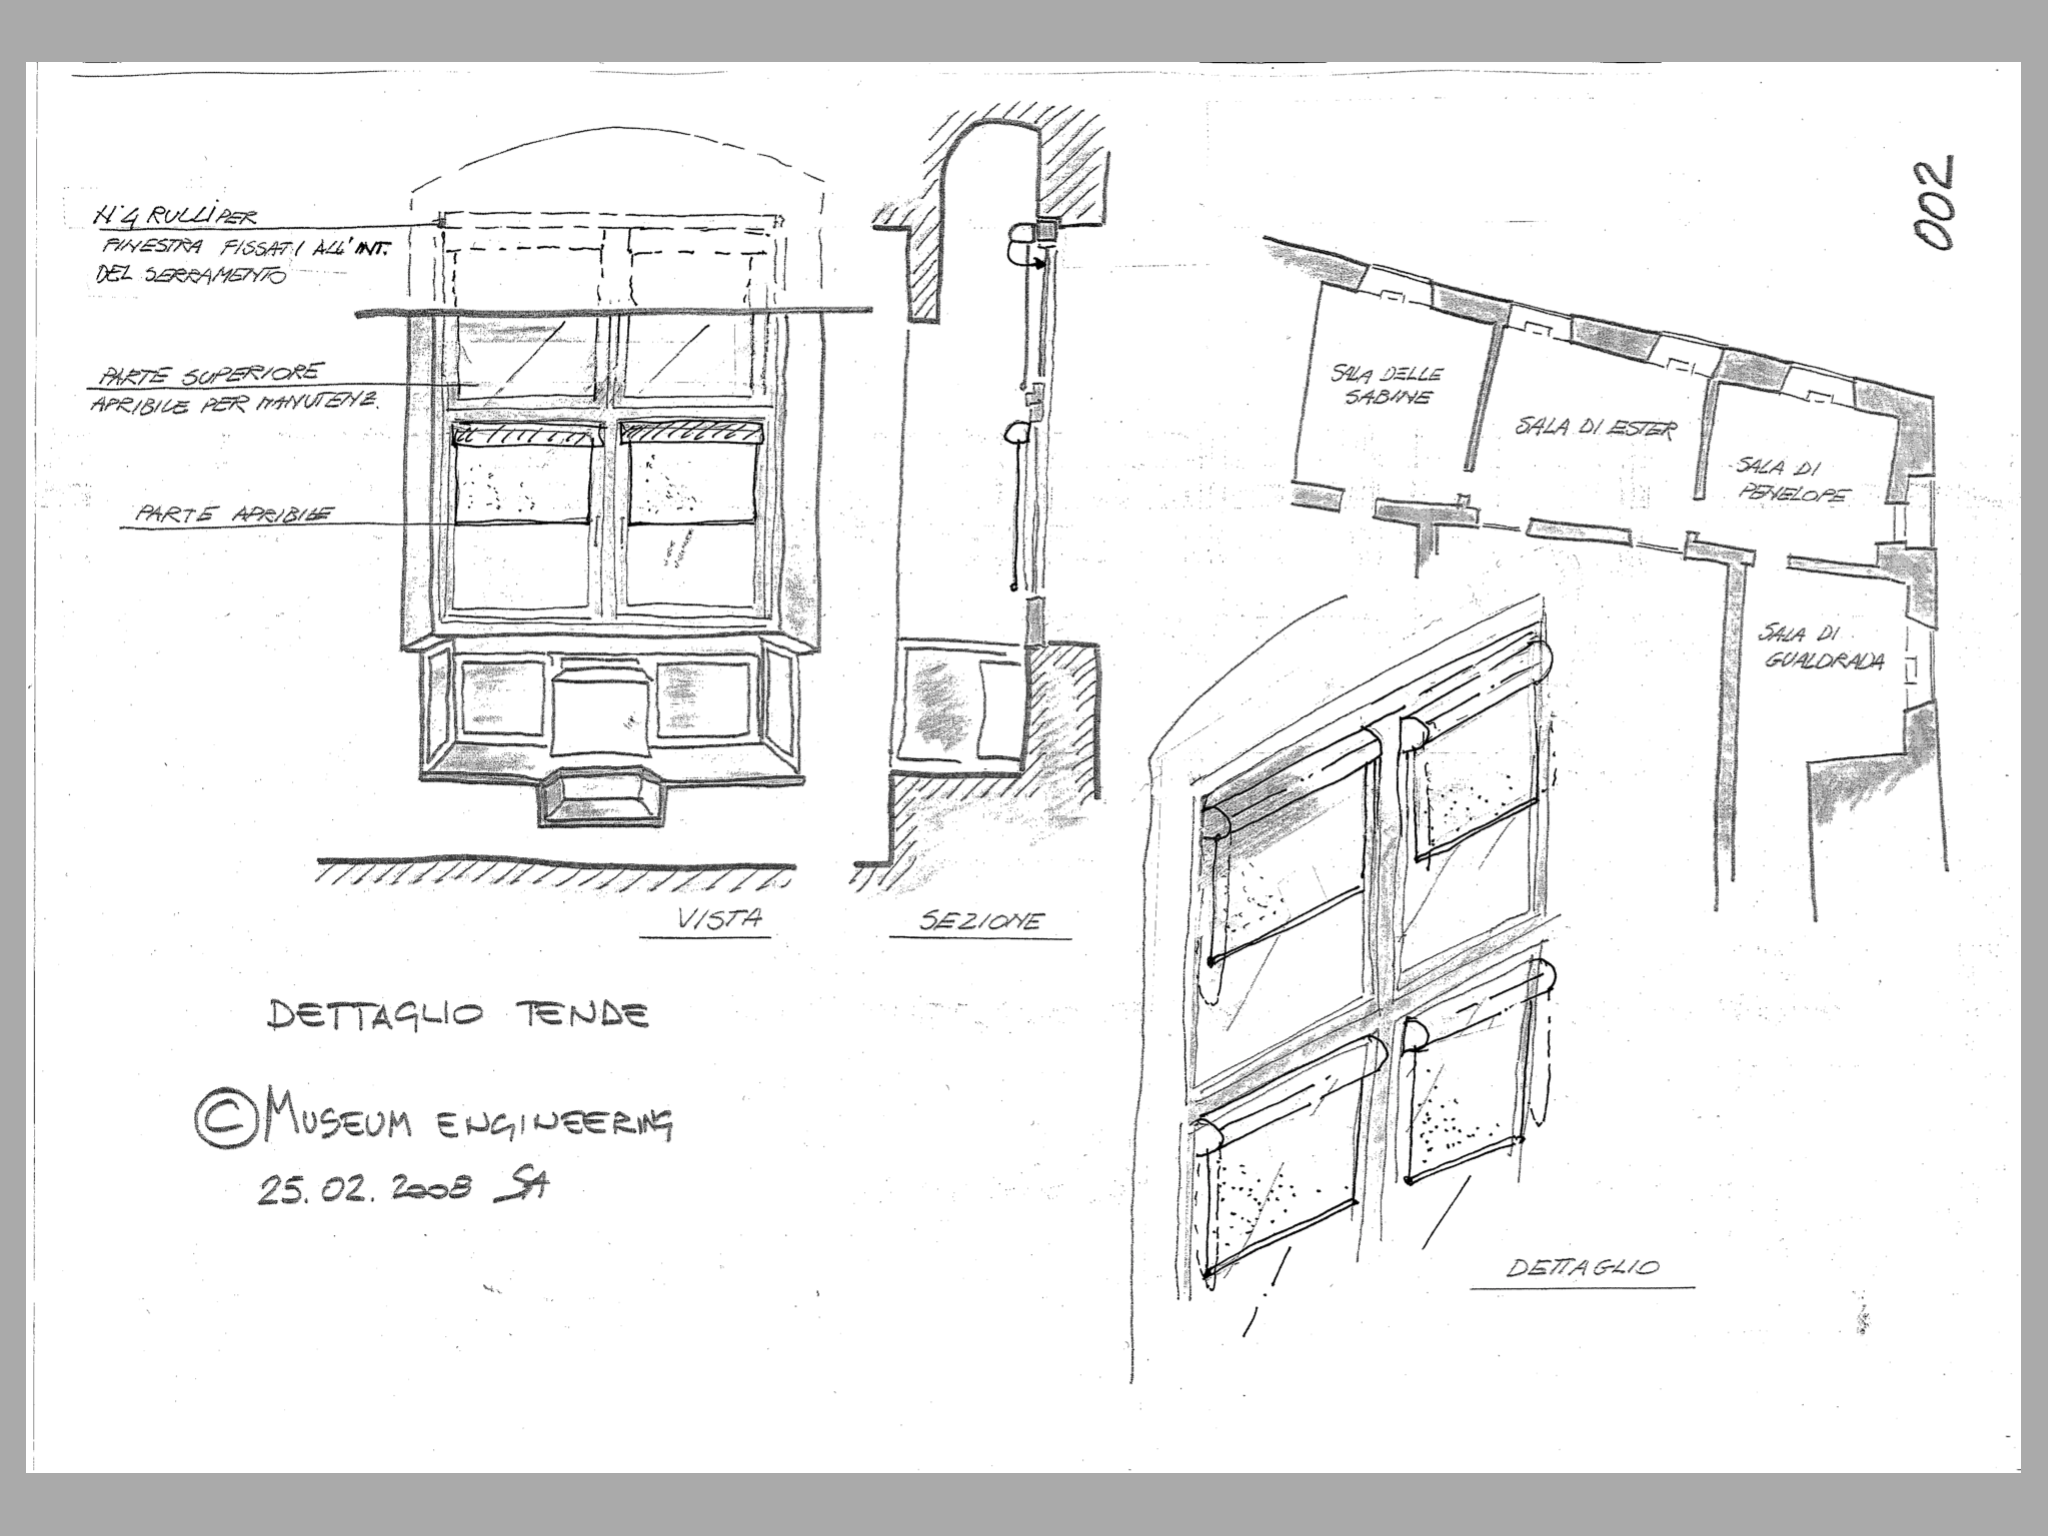 N°4 RULLI PER
FINESTRA FISSATI ALL'INT.
DEL SERRAMENTO
PARTE SUPERIORE
APRIBILE PER MANUTENZ.
PARTE APRIBILE
VISTA
SEZIONE
DETTAGLIO TENDE
© MUSEUM ENGINEERING
25.02.2008 SA
002
SALA DELLE
SABINE
SALA DI ESTER
SALA DI
PENELOPE
SALA DI
GUALDRADA
DETTAGLIO